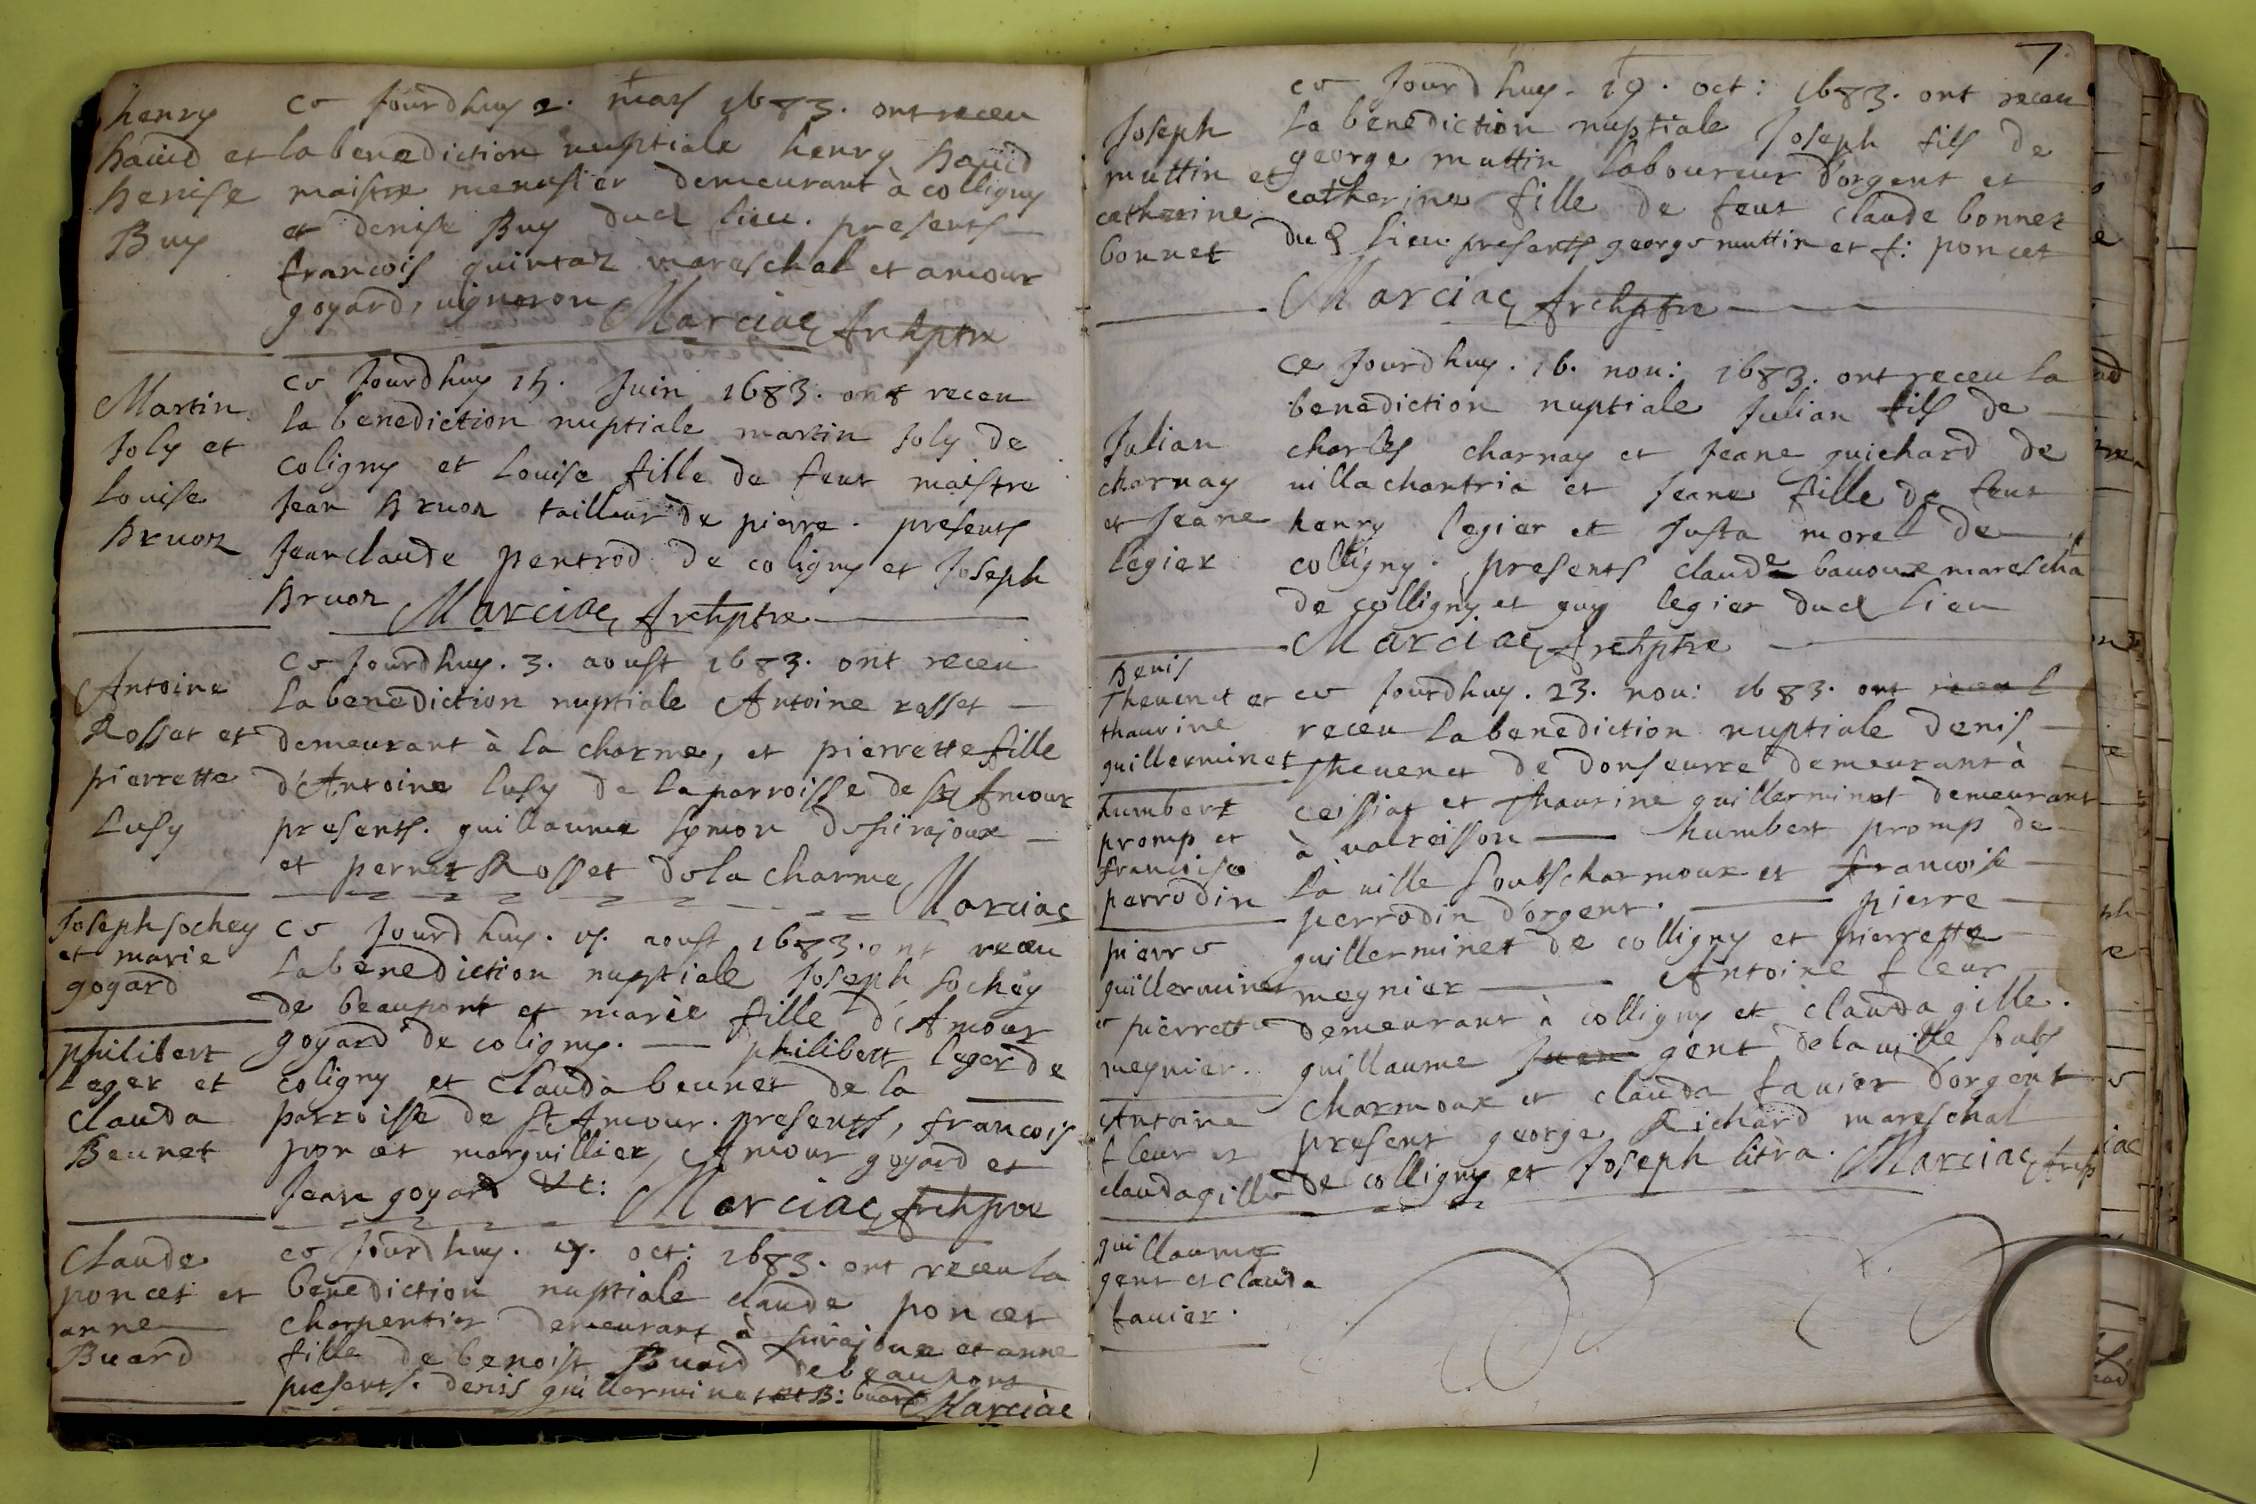 henry
haüid et
henise
Buy
ce Jourdhuy 2. mars 1683. ont receu
la benediction nuptiale henry haüid
maistre menusier demeurant à colligny
et denise Buy dud lieu. presents
francois quintaz mareschal et amour
goyard, uigneron Marciac Archptre
Martin
Joly et
Louise
Bruon
ce Jourdhuy 15. Juin 1683. ont receu
la benediction nuptiale martin Joly de
coligny et Louise fille de feut maistre
Jean Bruon tailleur de pierre. presents
Jeanclaude pentrod de coligny et Joseph
Bruon Marciac Archptre
Antoine
Rosset et
pierrette
Lusy
ce Jourdhuy. 3. aoust 1683. ont receu
la benediction nuptiale Antoine rosset
demeurant à la charme, et pierrette fille
d'Antoine lusy de la parroisse de st Amour
presents. guillaume symon de
et pernet Rosset de la charme Marciac
Joseph sochey
et marie
goyard
philibert
Leger et
Clauda
Beunet
ce Jourdhuy. aoust 1683. ont receu
la benediction nuptiale Joseph sochey
de beaupont et marie fille d'Amour
goyard de coligny. philibert leger de
coligny et Clauda beunet de la
parroisse de st Amour. presents, francois
poncet marguillier, Amour goyard et
Jean goyard &c: Marciac Archptre
Claude
poncet et
anne
Buard
ce Jourdhuy. oct: 1683. ont receu la
benediction nuptiale claude poncet
charpentier demeurant à et anne
fille de benoist Buard de beaupont
presents. denis guillerminet et B: buard Marciac
7
Joseph
muttin et
catherine
bonnet
ce Jourdhuy. 19. oct: 1683. ont receu
la benediction nuptiale Joseph fils de
george muttin laboureur d'orgent et
catherine fille de feut claude bonnet
dud lieu. presents george muttin et f: poncet
Marciac Archptre
Julian
charnay
et Jeane
legier
ce Jourdhuy. 16. nou: 1683. ont receu la
benediction nuptiale Julian fils de
charles charnay et Jeane guichard de
uillachantria et Jeane fille de feut
henry legier et Justa morel de
colligny. presents claude bauoux marescha
de colligny et guy legier dud lieu
Marciac Archptre
Denis
Theuenet et
thaurine
guillerminet
humbert
promp et
francoise
perrodin
pierre
guillerminet
et pierrette
meynier.
Antoine
fleur et
clauda gille
guillaume
gent et clauda
fauier.
ce Jourdhuy. 23. nou: 1683. ont receu l
receu la benediction nuptiale denis
Theuenet de donseurre demeurant à
ceissiat et Thaurine guillerminet demeurant
à ualceisson humbert promp de
la uille soubscharmoux et francoise
perrodin d'orgent. pierre
guillerminet de colligny et pierrette
meynier Antoine fleur
demeurant à colligny et clauda gille.
guillaume gent de la uille soubs
charmoux et clauda fauier d'orgent
present george Richard mareschal
de colligny et Joseph litra. Marciac Archp